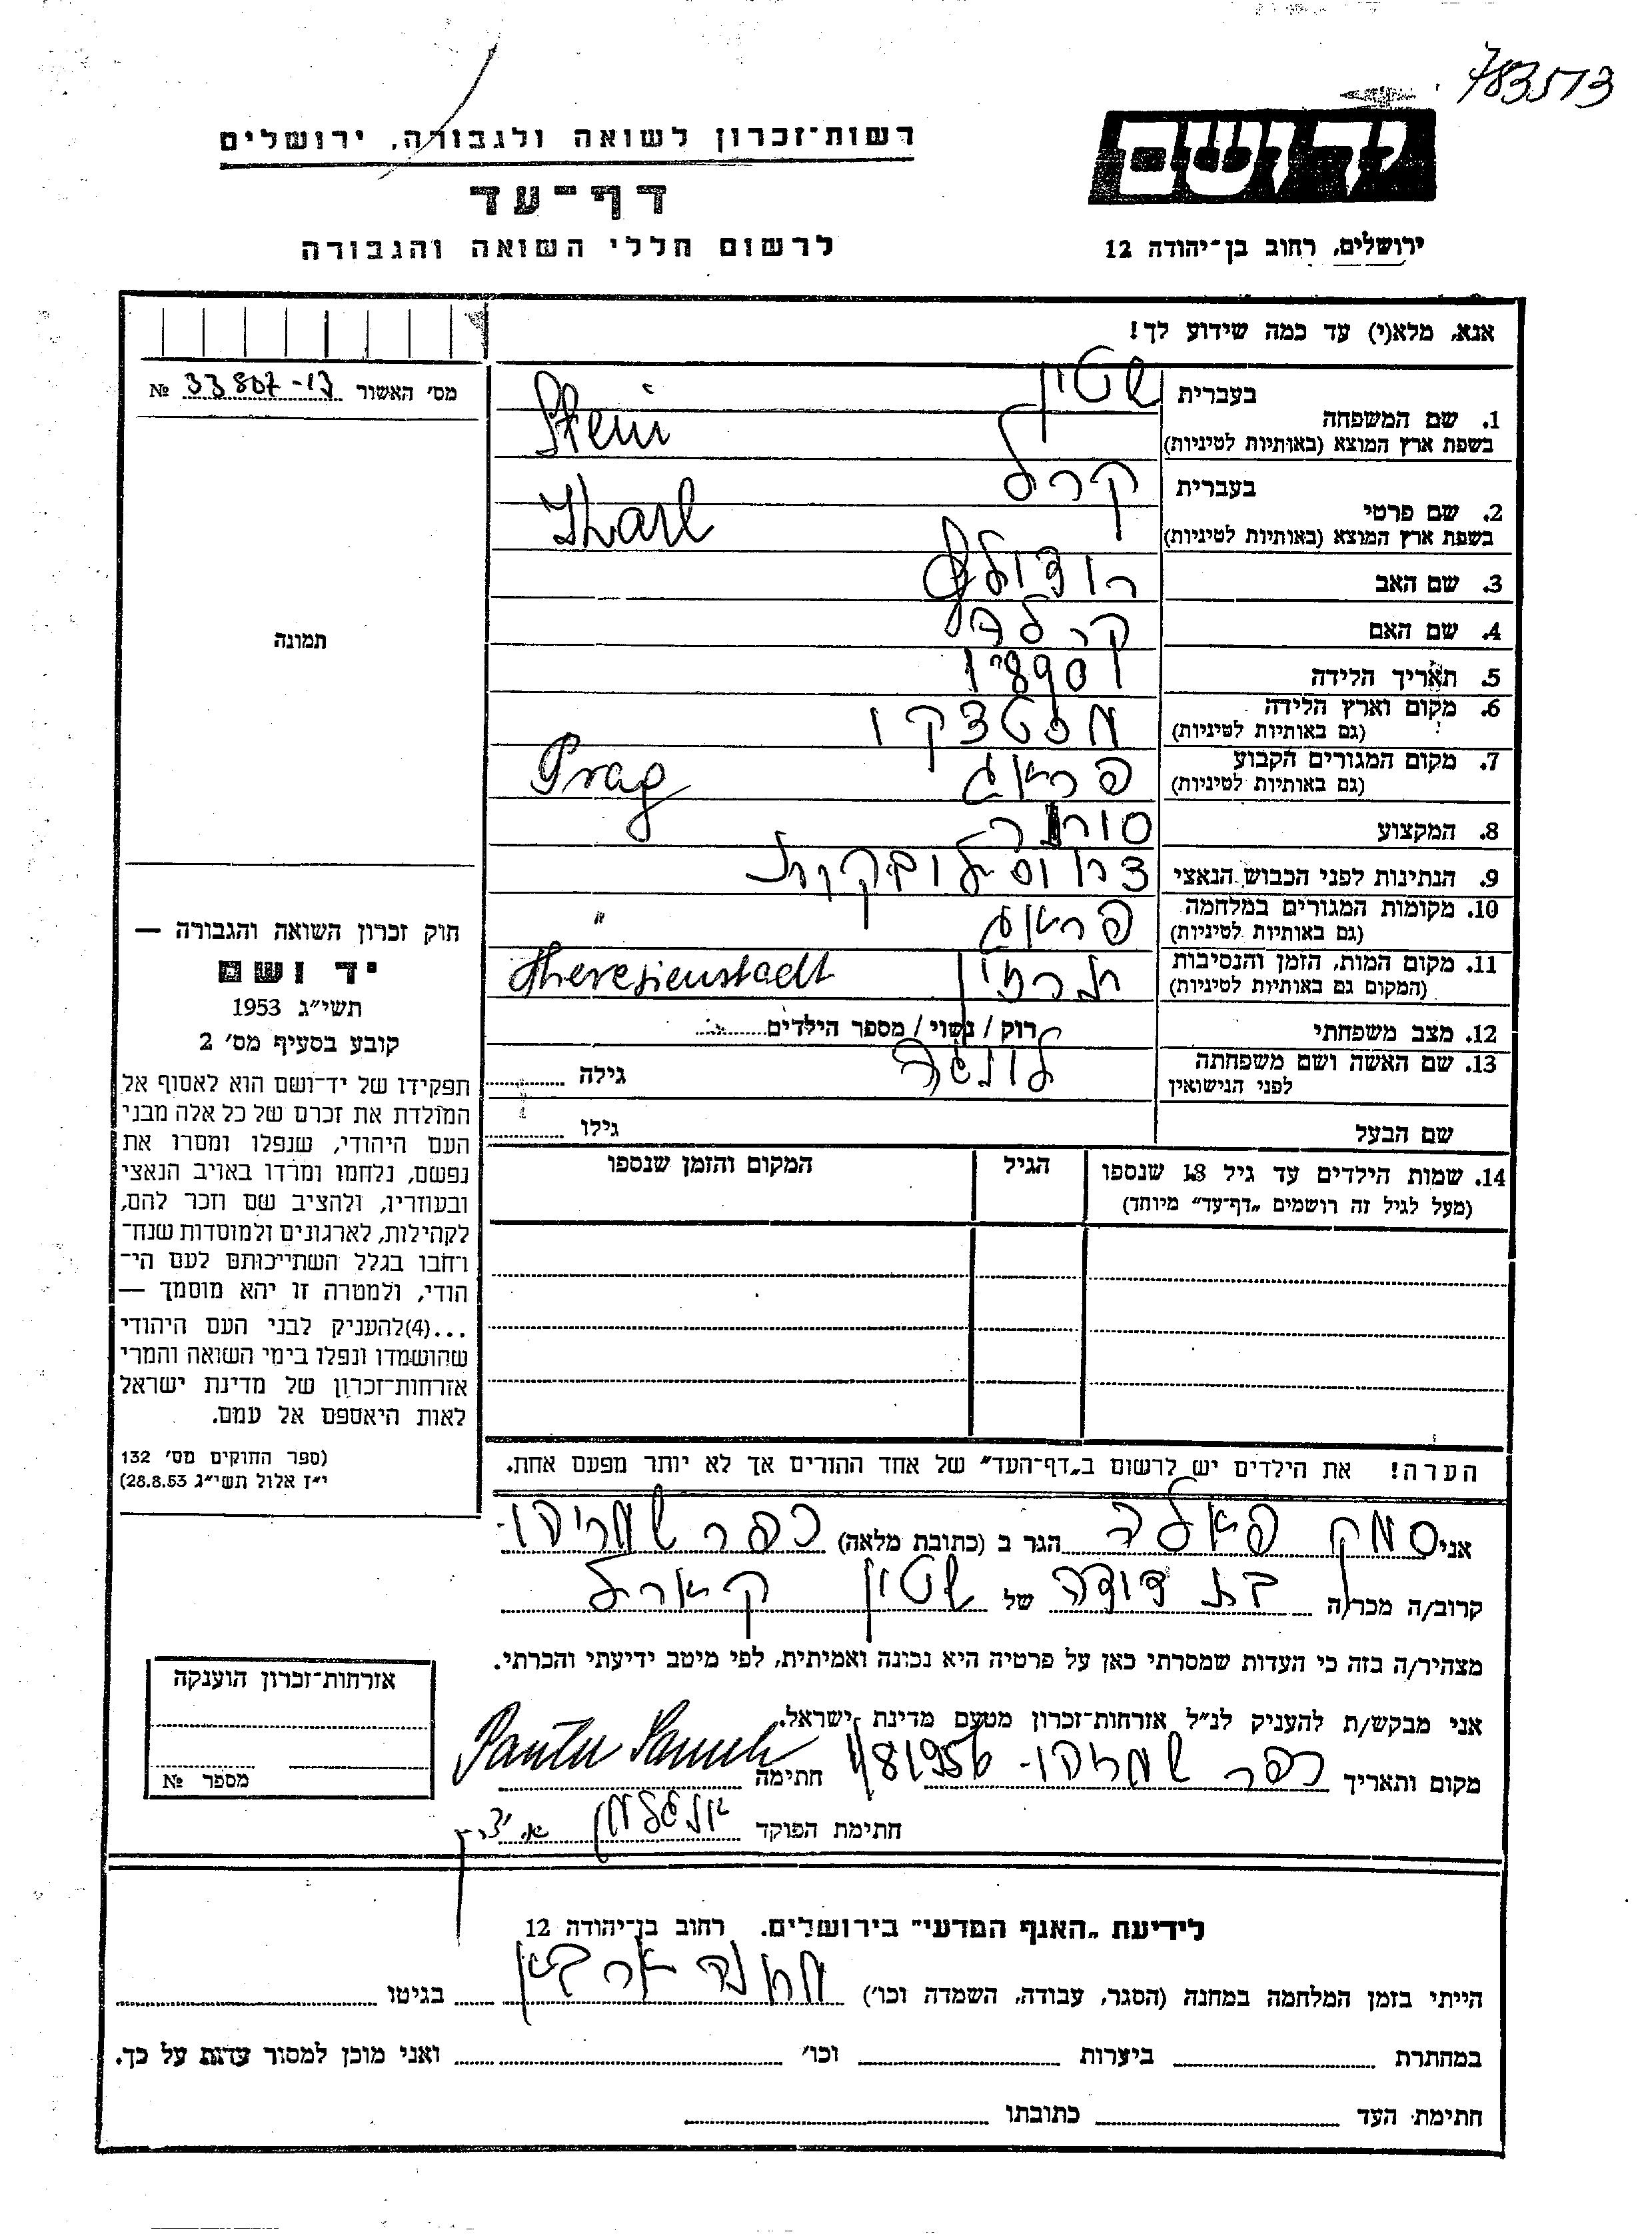 783513
רשות־זכרון לשואה ולגבורה, ירושלים
דף־עד
לרשום חללי השואה והגבורה
יד ושם
ירושלים, רחוב בן־יהודה 12
אנא, מלא(י) עד כמה שידוע לך!
מס׳ האשור № 33807-13
תמונה
1. שם המשפחה בעברית שטין
בשפת ארץ המוצא (באותיות לטיניות) Stein
2. שם פרטי בעברית קרל
בשפת ארץ המוצא (באותיות לטיניות) Kharl
3. שם האב רודולף
4. שם האם
5. תאריך הלידה
6. מקום וארץ הלידה
(גם באותיות לטיניות)
7. מקום המגורים הקבוע פראג Prag
(גם באותיות לטיניות)
8. המקצוע סוחר
9. הנתינות לפני הכבוש הנאצי
10. מקומות המגורים במלחמה פראג "
(גם באותיות לטיניות)
11. מקום המות, הזמן והנסיבות Theresienstadt
(המקום גם באותיות לטיניות)
12. מצב משפחתי רוק / נשוי / מספר הילדים
13. שם האשה ושם משפחתה
לפני הנישואין
גילה
שם הבעל
גילו
14. שמות הילדים עד גיל 18 שנספו
(מעל לגיל זה רושמים „דף־עד״ מיוחד)
הגיל
המקום והזמן שנספו
חוק זכרון השואה והגבורה —
יד ושם
תשי״ג 1953
קובע בסעיף מס׳ 2
תפקידו של יד־ושם הוא לאסוף אל
המולדת את זכרם של כל אלה מבני
העם היהודי, שנפלו ומסרו את
נפשם, נלחמו ומרדו באויב הנאצי
ובעוזריו, ולהציב שם וזכר להם,
לקהילות, לארגונים ולמוסדות שנח־
רבו בגלל השתייכותם לעם הי־
הודי, ולמטרה זו יהא מוסמך —
...(4)להעניק לבני העם היהודי
שהושמדו ונפלו בימי השואה והמרי
אזרחות־זכרון של מדינת ישראל
לאות היאספם אל עמם.
(ספר החוקים מס׳ 132
י״ז אלול תשי״ג 28.8.53)
הערה! את הילדים יש לרשום ב„דף־העד״ של אחד ההורים אך לא יותר מפעם אחת.
אני הגר ב (כתובת מלאה) כפר שמריהו
קרוב/ה מכר/ה בת דודה של שטין קארל
מצהיר/ה בזה כי העדות שמסרתי כאן על פרטיה היא נכונה ואמיתית, לפי מיטב ידיעתי והכרתי.
אני מבקש/ת להעניק לנ״ל אזרחות־זכרון מטעם מדינת ישראל.
מקום ותאריך כפר שמריהו חתימה
חתימת הפוקד
אזרחות־זכרון הוענקה
מספר №
לידיעת „האגף המדעי״ בירושלים. רחוב בן־יהודה 12
הייתי בזמן המלחמה במחנה (הסגר, עבודה, השמדה וכו׳) בגיטו
במחתרת ביערות וכו׳ ואני מוכן למסור עדות על כך.
חתימת העד כתובתו